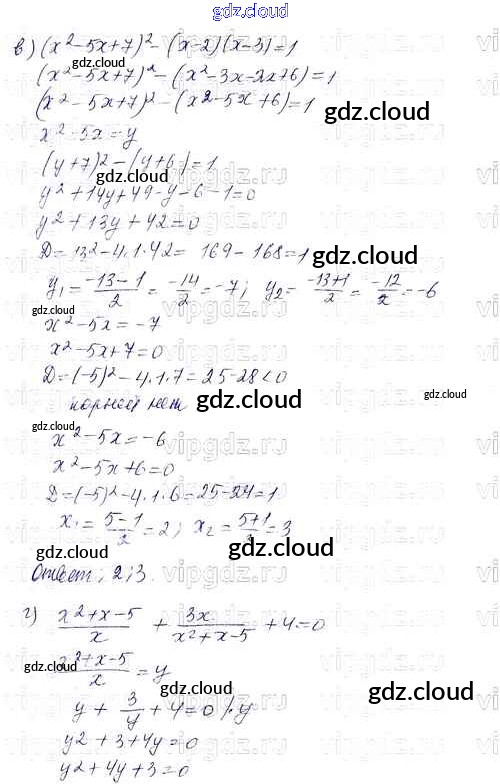 gdz.cloud
в) (x²-5x+7)²-(x-2)(x-3)=1
(x²-5x+7)²-(x²-3x-2x+6)=1
(x²-5x+7)²-(x²-5x+6)=1
gdz.cloud
x²-5x=y
(y+7)²-(y+6)=1
gdz.cloud
y²+14y+49-y-6-1=0
y²+13y+42=0
gdz.cloud
D=13²-4·1·42=169-168=1
y₁=(-13-1)/2=-14/2=-7; y₂=(-13+1)/2=-12/2=-6
x²-5x=-7
gdz.cloud
x²-5x+7=0
D=(-5)²-4·1·7=25-28<0
корней нет
gdz.cloud
gdz.cloud
gdz.cloud
x²-5x=-6
x²-5x+6=0
D=(-5)²-4·1·6=25-24=1
x₁=(5-1)/2=2; x₂=(5+1)/2=3
gdz.cloud
gdz.cloud
Ответ: 2; 3.
г) (x²+x-5)/x + 3x/(x²+x-5) + 4=0
gdz.cloud
(x²+x-5)/x=y
gdz.cloud
gdz.cloud
y+3/y+4=0 |·y
gdz.cloud
y²+3+4y=0
y²+4y+3=0
gdz.cloud
vipgdz.ru